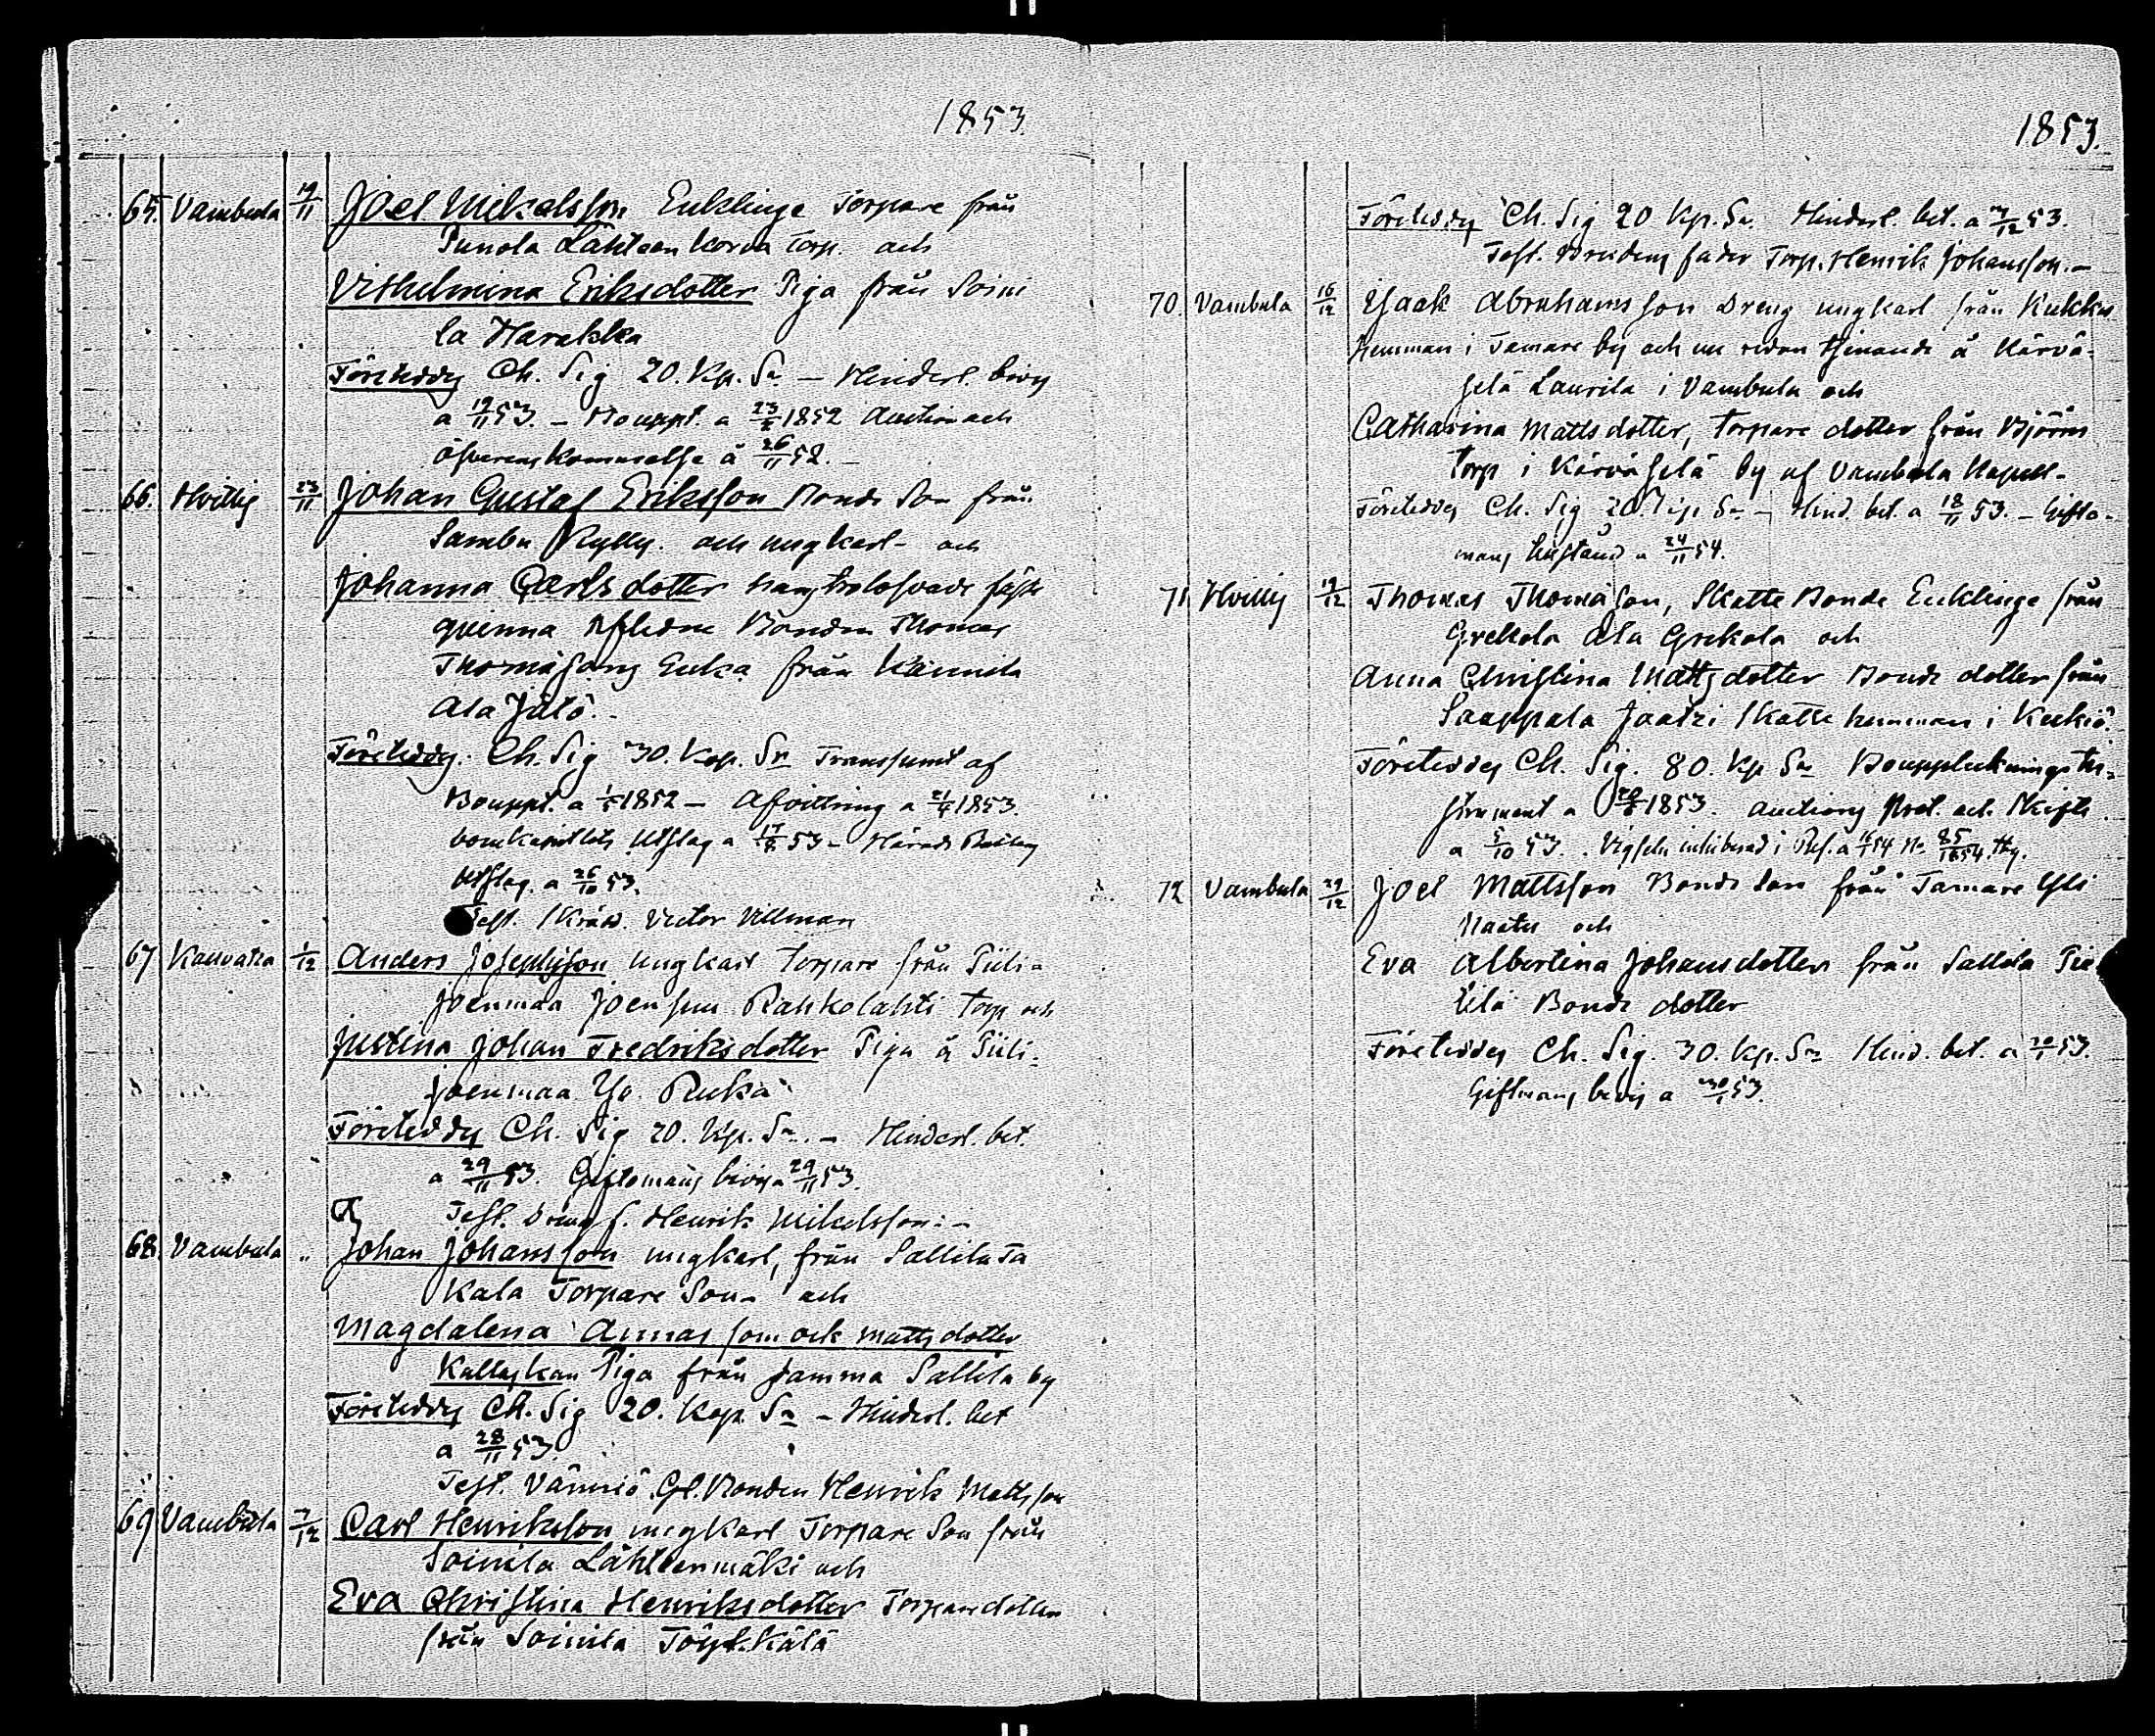 1853.
65. Vambula 19/11 Joel Mikelsson Enklinge Torpare från
Punola Lähteen korva torp. och
Vilhelmina Eriksdotter Piga från Soini
la Harakka
Företeddes Ch. Sig 20. Kp. Sr. – Hinderl. bevis
a 19/11 53. – Bouppt. a 23/2 1852 Auction och
öfverenskommelse å 26/11 52. –
66. Hvittis 23/11 Johan Gustaf Eriksson Bonde Son från
Sambu Kylly. och ungkarl – och
Johanna Carlsdotter hans trolofvade fäste
qvinna Afledne Bonden Thomas
Thomæsons Enka från Kännilä
Ala Jälö. –
Företeddes. Ch. Sig 30. Kop. Sr Transsumt af
Bouppt. a 1/5 1852 – Afvittring a 21/4 1853.
Domkapitlets Utslag a 17/8 53 – Härads Rättens
Utslag. a 26/10 53.
Test. Skräd. Victor Villman
67 Kauvatsa 1/12 Anders Josephsson ungkarl torpare från Piili=
Joenmaa Joensuu Rahkolahti torp och
Justina Johan Fredriksdotter Piga å Piili-
joenmaa Yo. Ruka
Företeddes Ch. Sig 20. Kp. Sr. – Hinderl. bet.
a 29/11 53. Giftomans bevis a 29/11 53.
Test. Henrik Mikelsson: –
68. Vambula " Johan Johansson ungkarl, från Sallila Ta
Kala Torpare Son – och
Magdalena Annas som ock Mattsdotter
Kallas kan Piga från samma Sallila by
Företeddes Ch. Sig 20. Kop. Sr – Hinderl. bet
a 28/11 53.
Test. Vänniö Gl. Bonden Henrik Mattsson
69 Vambula 7/12 Carl Henriksson ungkarl Torpare Son från
Soinila Lähteenmäki och
Eva Christina Henriksdotter Torparedotter
från Soinila
1853.
Företeddes Ch. Sig 20 Kp. Sr. Hinderl. bet. a 7/12 53.
Test. Brudens fader Torp. Henrik Johansson. –
70. Vambula 16/12 Isaak Abrahamsson Dreng ungkarl från Kukkus
hemman i Tamare by och nu redan tjenande å Kärvä-
selä Laurila i Vambula och
Catharina Mattsdotter, Torpare dotter från Björns
torp i Kärväselä by af Vambula Kapell-
Företeddes Ch. Sig 20. Kp. Sr – Hind. bet. a 18/11 53. – Gifto-
mans tillstånd a 24/11 54.
71 Hvittis 19/12 Thomas Thomæson, Skatte Bonde Enklinge från
Grekola Ala Grekola och
Anna Christina Mattsdotter Bonde dotter från
Sauppala Jaatzi Skatte hemman i Keikiö.
Företeddes Ch. Sig. 80. Kp Sr Bouppteckningsin-
strument a 1853. Auctions Prot. och Skifte
a 5/10 53. Vigseln inhiberad i Ref. a 16/1 54 No 85/1854.
72 Vambula 29/12 Joel Mattsson Bonde Son från Tamare Yli
Naatu och
Eva Albertina Johansdotter från Sallila Pie
tilä Bonde dotter
Företeddes Ch. Sig. 30. Kp. Sr Hind. bet. a 53.
Giftmans bevis a 53.